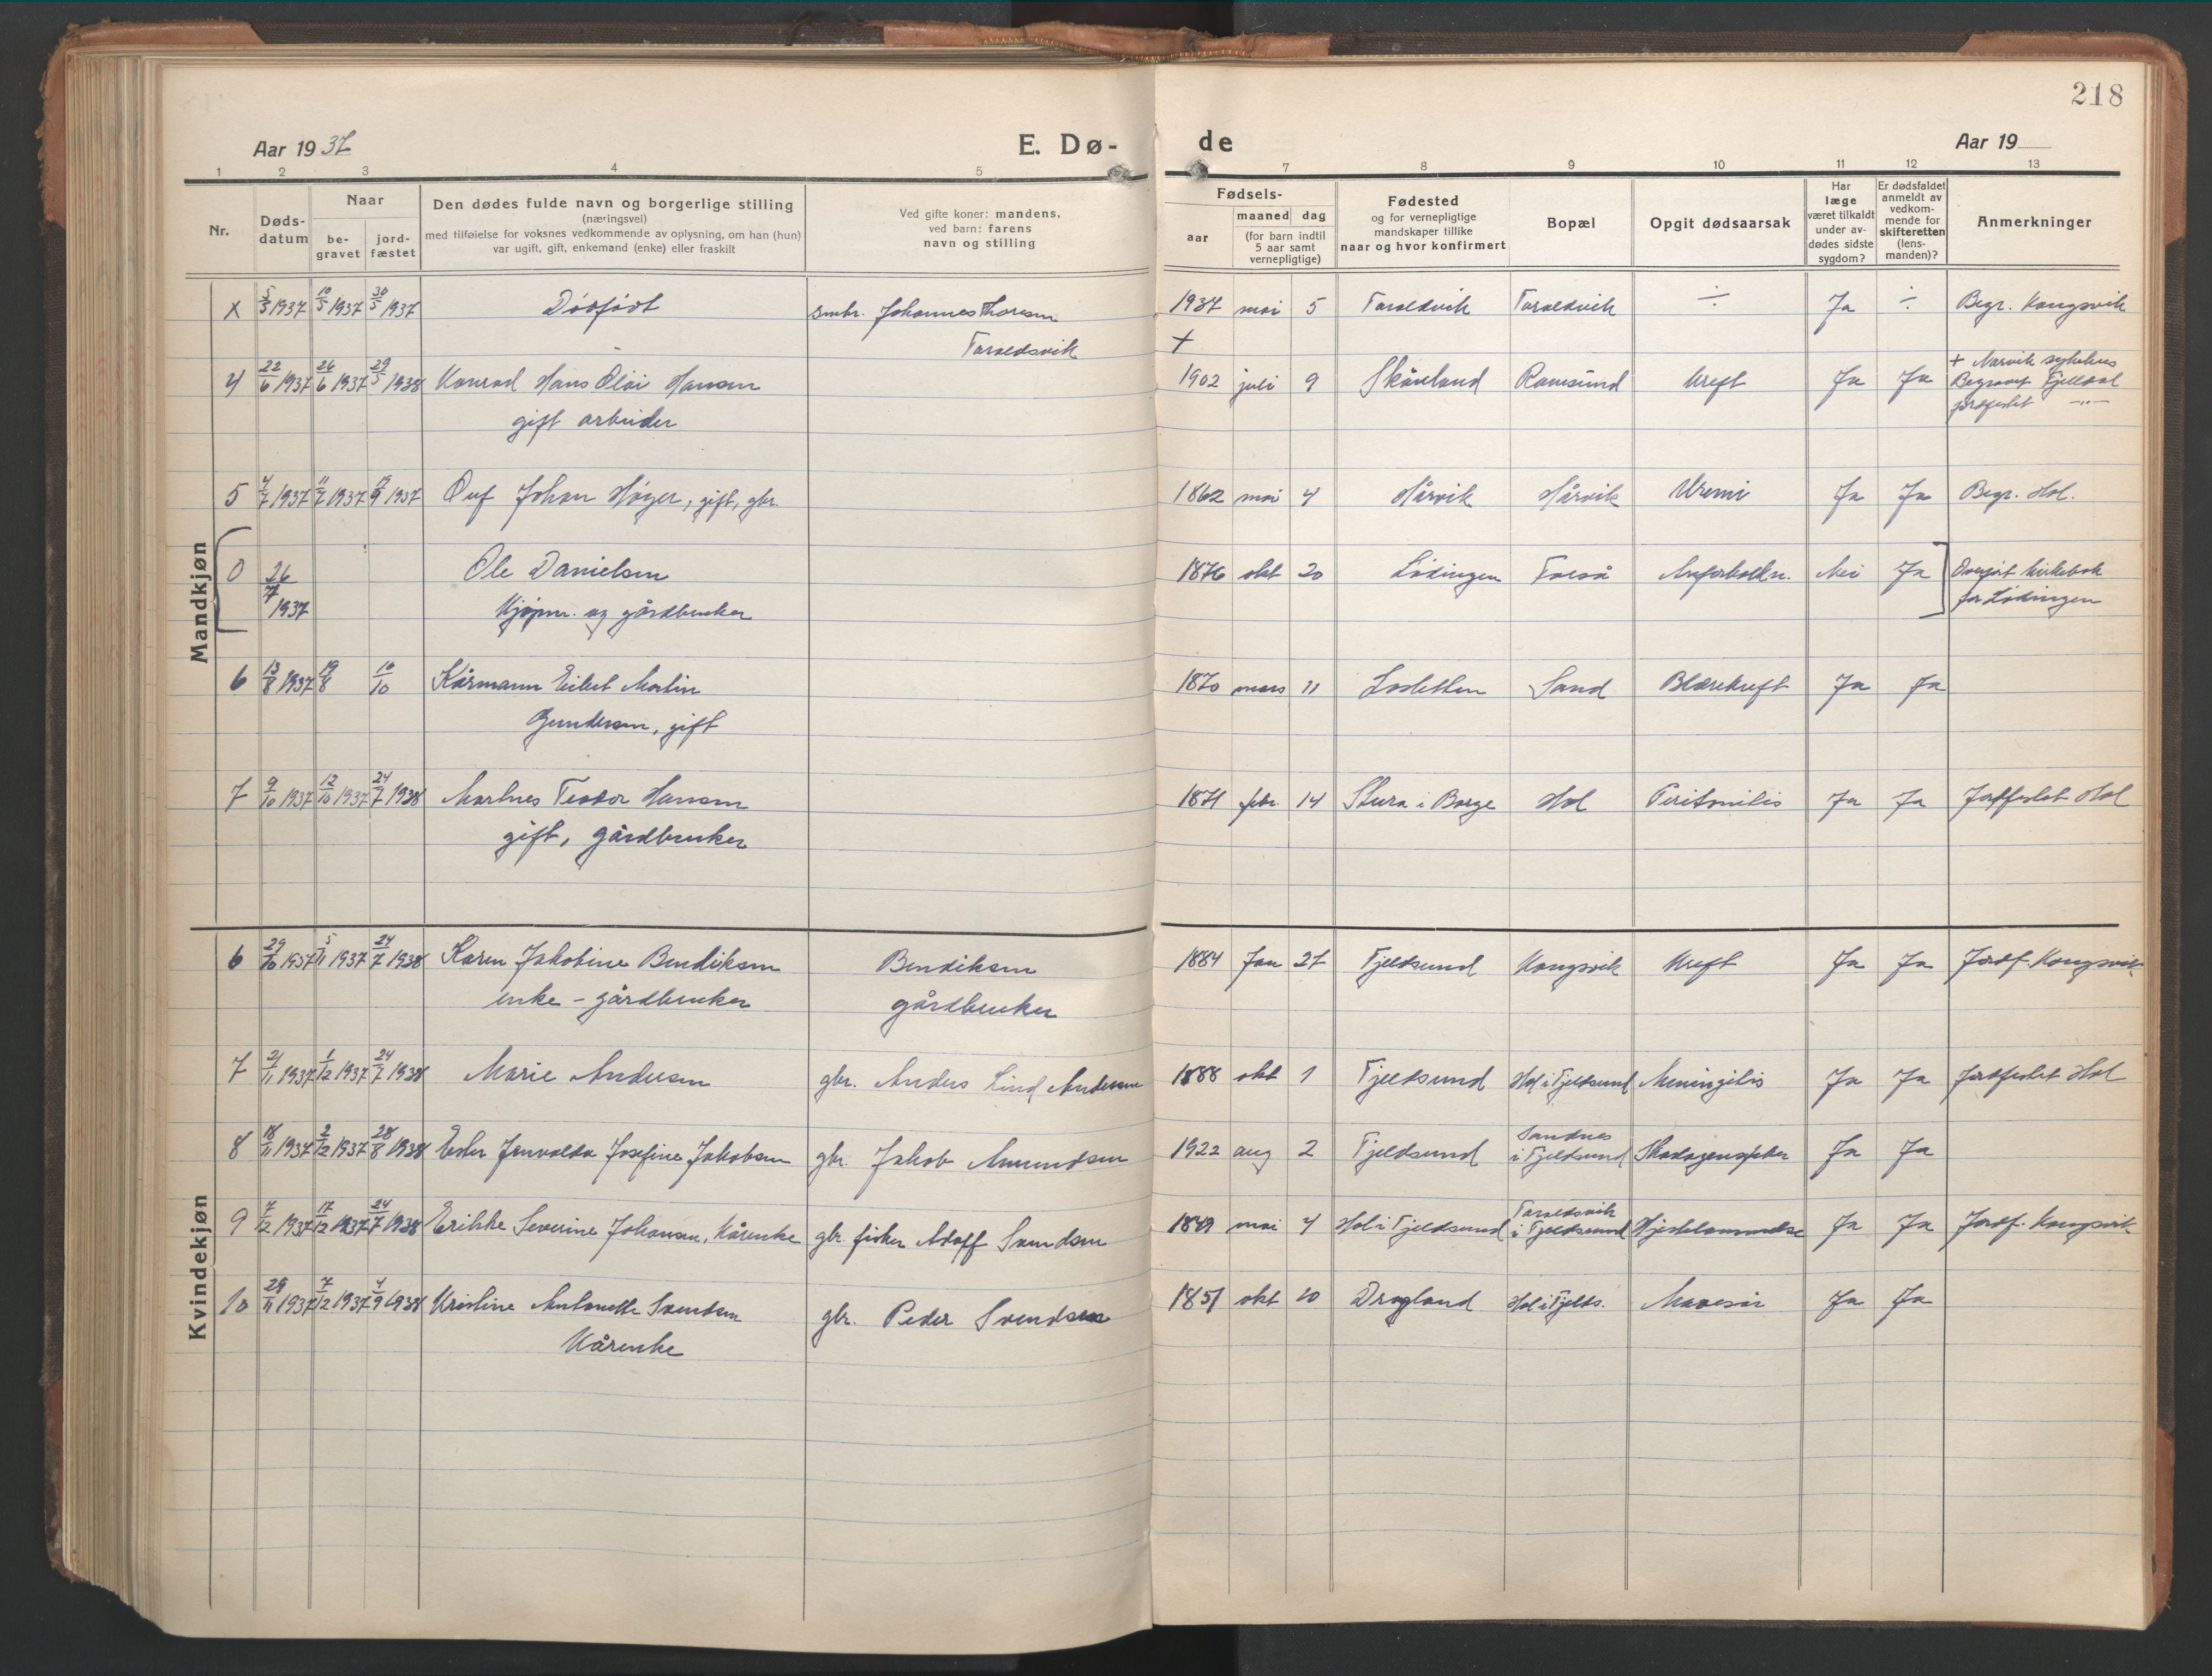 218
Aar 1937 E. Dø- de Aar 19
1 2 3 4 5 7 8 9 10 11 12 13
Nr.
Døds-
datum
Naar
be-
gravet
jord-
fæstet
Den dødes fulde navn og borgerlige stilling
(næringsvei)
med tilføielse for voksnes vedkommende av oplysning, om han (hun)
var ugift, gift, enkemand (enke) eller fraskilt
Ved gifte koner: mandens,
ved barn: farens
navn og stilling
Fødsels-
aar
maaned dag
(for barn indtil
5 aar samt
vernepligtige)
Fødested
og for vernepligtige
mandskaper tillike
naar og hvor konfirmert
Bopæl
Opgit dødsaarsak
Har
læge
været tilkaldt
under av-
dødes sidste
sygdom?
Er dødsfaldet
anmeldt av
vedkom-
mende for
skifteretten
(lens-
manden)?
Anmerkninger
Mandkjøn
x 5/5 1937 10/5 1937 30/5 1937 Dødfødt smbr. Johannes Thoresen 1937 mai 5 Taraldvik Taraldvik ÷ Ja ÷ Begr. Kongsvik
Taraldsvik +
4 22/6 1937 26/6 1937 29/5 1938 Konrad Hans Olai Hansen 1902 juli 9 Skånland Ramsund Kreft Ja Ja + Narvik sykehus
Begravet Fjelldal
gift arbeider jordfestet -"-
5 4/7 1937 11/7 1937 1937 Johan Høger, gift, gbr. 1862 mai 4 Hårvik Hårvik Uremi Ja Ja Begr. Hol.
0 26/7 1937 Ole Danielsen 1876 okt 20 Lödingen Nei Ja Overført kirkebok
Kjøpm. og gårdbruker for Lødingen
6 13/8 1937 19/8 10/10 Kårmann Eilert Martin 1870 mars 11 Sand Blærekreft Ja Ja
Gundersen, gift
7 9/10 1937 12/10 1937 24/7 1938 Martines Teodor Hansen 1871 febr 14 i Borge Hol Peritonitis Ja Ja Jordfestet Hol
gift, gårdbruker
Kvindekjøn
6 29/10 1937 5/11 1937 24/7 1938 Karen Jakobine Bendiksen Bendiksen 1884 Jan 27 Fjeldsund Kongsvik Kreft Ja Ja Jordf. Kongsvik
enke - gårdbruker gårdbruker
7 1937 1/12 1937 24/7 1938 Marie Andersen gbr. Anders Lind Andersen 1888 okt 1 Fjeldsund Hol i Fjeldsund Meningitis Ja Ja Jordfestet Hol
8 18/11 1937 2/12 1937 28/8 1938 Ester Josefine Jakobsen gbr. Jakob Amundsen 1922 aug 2 Fjeldsund Sandnes
i Fjeldsund Ja Ja
9 7/12 1937 17/12 1937 24/7 1938 Erikke Severine Johansen, Kårenke gbr. fisker Adolf Svendsen 1849 mai 4 Hol i Fjeldsund Taraldsvik
i Fjeldsund Ja Ja Jordf. Kongsvik
10 29/11 1937 7/12 1937 4/9 1938 Kristine Antonette Svendsen gbr. Peder Svendsen 1851 okt 10 Dragland Hol i Fjelds. Mavesår Ja Ja
Kårenke